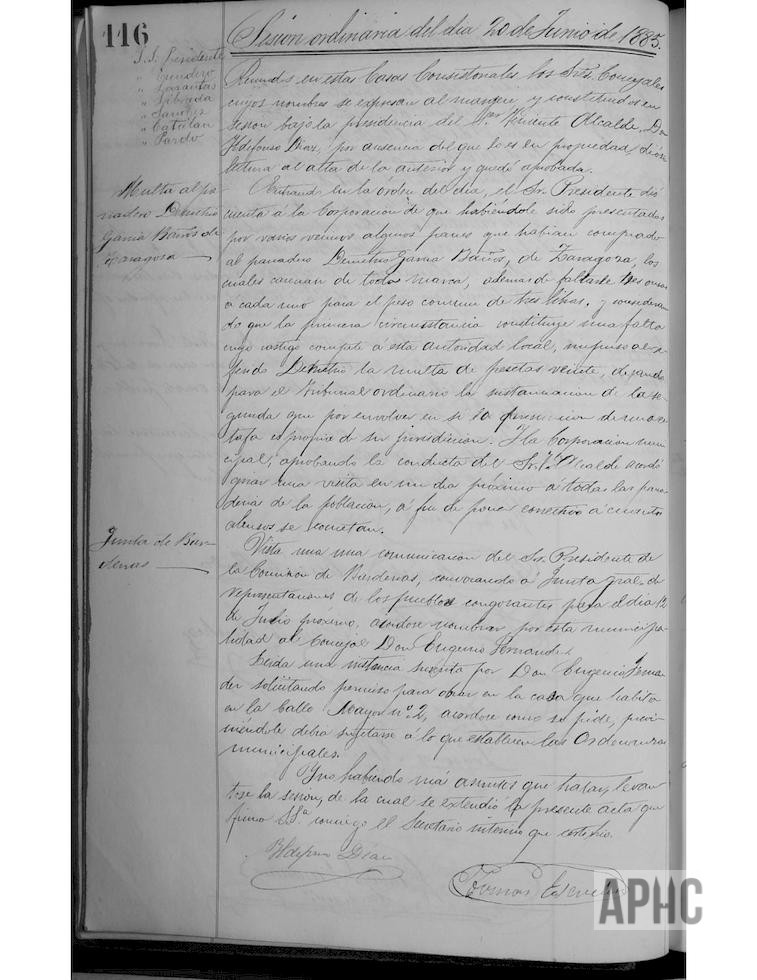 116
Sesion ordinaria del dia 20 de Junio de 1885.
S.S. Presidente
" Escudero
" Lasantas
" Librada
" Sanchez
" Catalan
" Pardo
Reunidos en estas Casas Consistoriales los Sres. Concejales
cuyos nombres se expresan al margen y constituidos en
sesion bajo la presidencia del Sor Teniente Alcalde Don
Ildefonso Diaz, por ausencia del que lo es en propiedad, dióse
lectura al alta de la anterior y quedó aprobada.
Multa al pa-
nadero Demetrio
Garcia Baños de
Zaragosa
Entrand en la orden del dia, el Sr. Presidente dió
cuenta á la Corporacion de que habiéndole sido presentados
por varios vecinos algunos panes que habian comprado
al panadero Demetrio Garcia Baños, de Zaragoza, los
cuales carecian de toda marca, ademas de faltarle tres onzas
a cada uno para el peso comun de tres libras, y consideran-
do que la primera circunstancia constituye una falta
cuyo castigo compete á esta autoridad local, impuso al re-
ferido Demetrio la multa de pesetas veinte, dejando
para el Tribunal ordinario la sustanciacion de la se-
gunda que por envolver en si la presuncion de una es-
tafa es propia d su jurisdicion. Y la Corporacion muni-
cipal, aprobando la conducta del Sr. Tte Alcalde acordó
girar una visita en un dia próximo á todas las pana-
derias de la poblacion, á fin de poner correctivo á cuantos
abusos se cometan.
Junta de Bar-
denas
Vista una una comunicacion del Sr. Presidente de
la Comision de Bardenas, convocando á Junta gral. de
representaciones de los pueblos congozantes para el dia 12
de Julio próximo, acordose nombrar por esta municipa-
lidad al Concejal Don Eugenio Fernandez.
Leida una instancia suscrita por Don Eugenio Fernan-
dez solicitando permiso para obrar en la casa que habita
en la Calle Mayor nº 2, acordose como se pide, previ-
niéndole debia sujetarse á lo que establecen las Ordenanzas
municipales.
Y no habiendo más asuntos que tratar, levan
tose la sesión, de la cual se extendió la presente acta que
firma S.Sª. conmigo el Secretario interino que certifico.
Ildefonso Diaz
Tomas Escudero
APHC